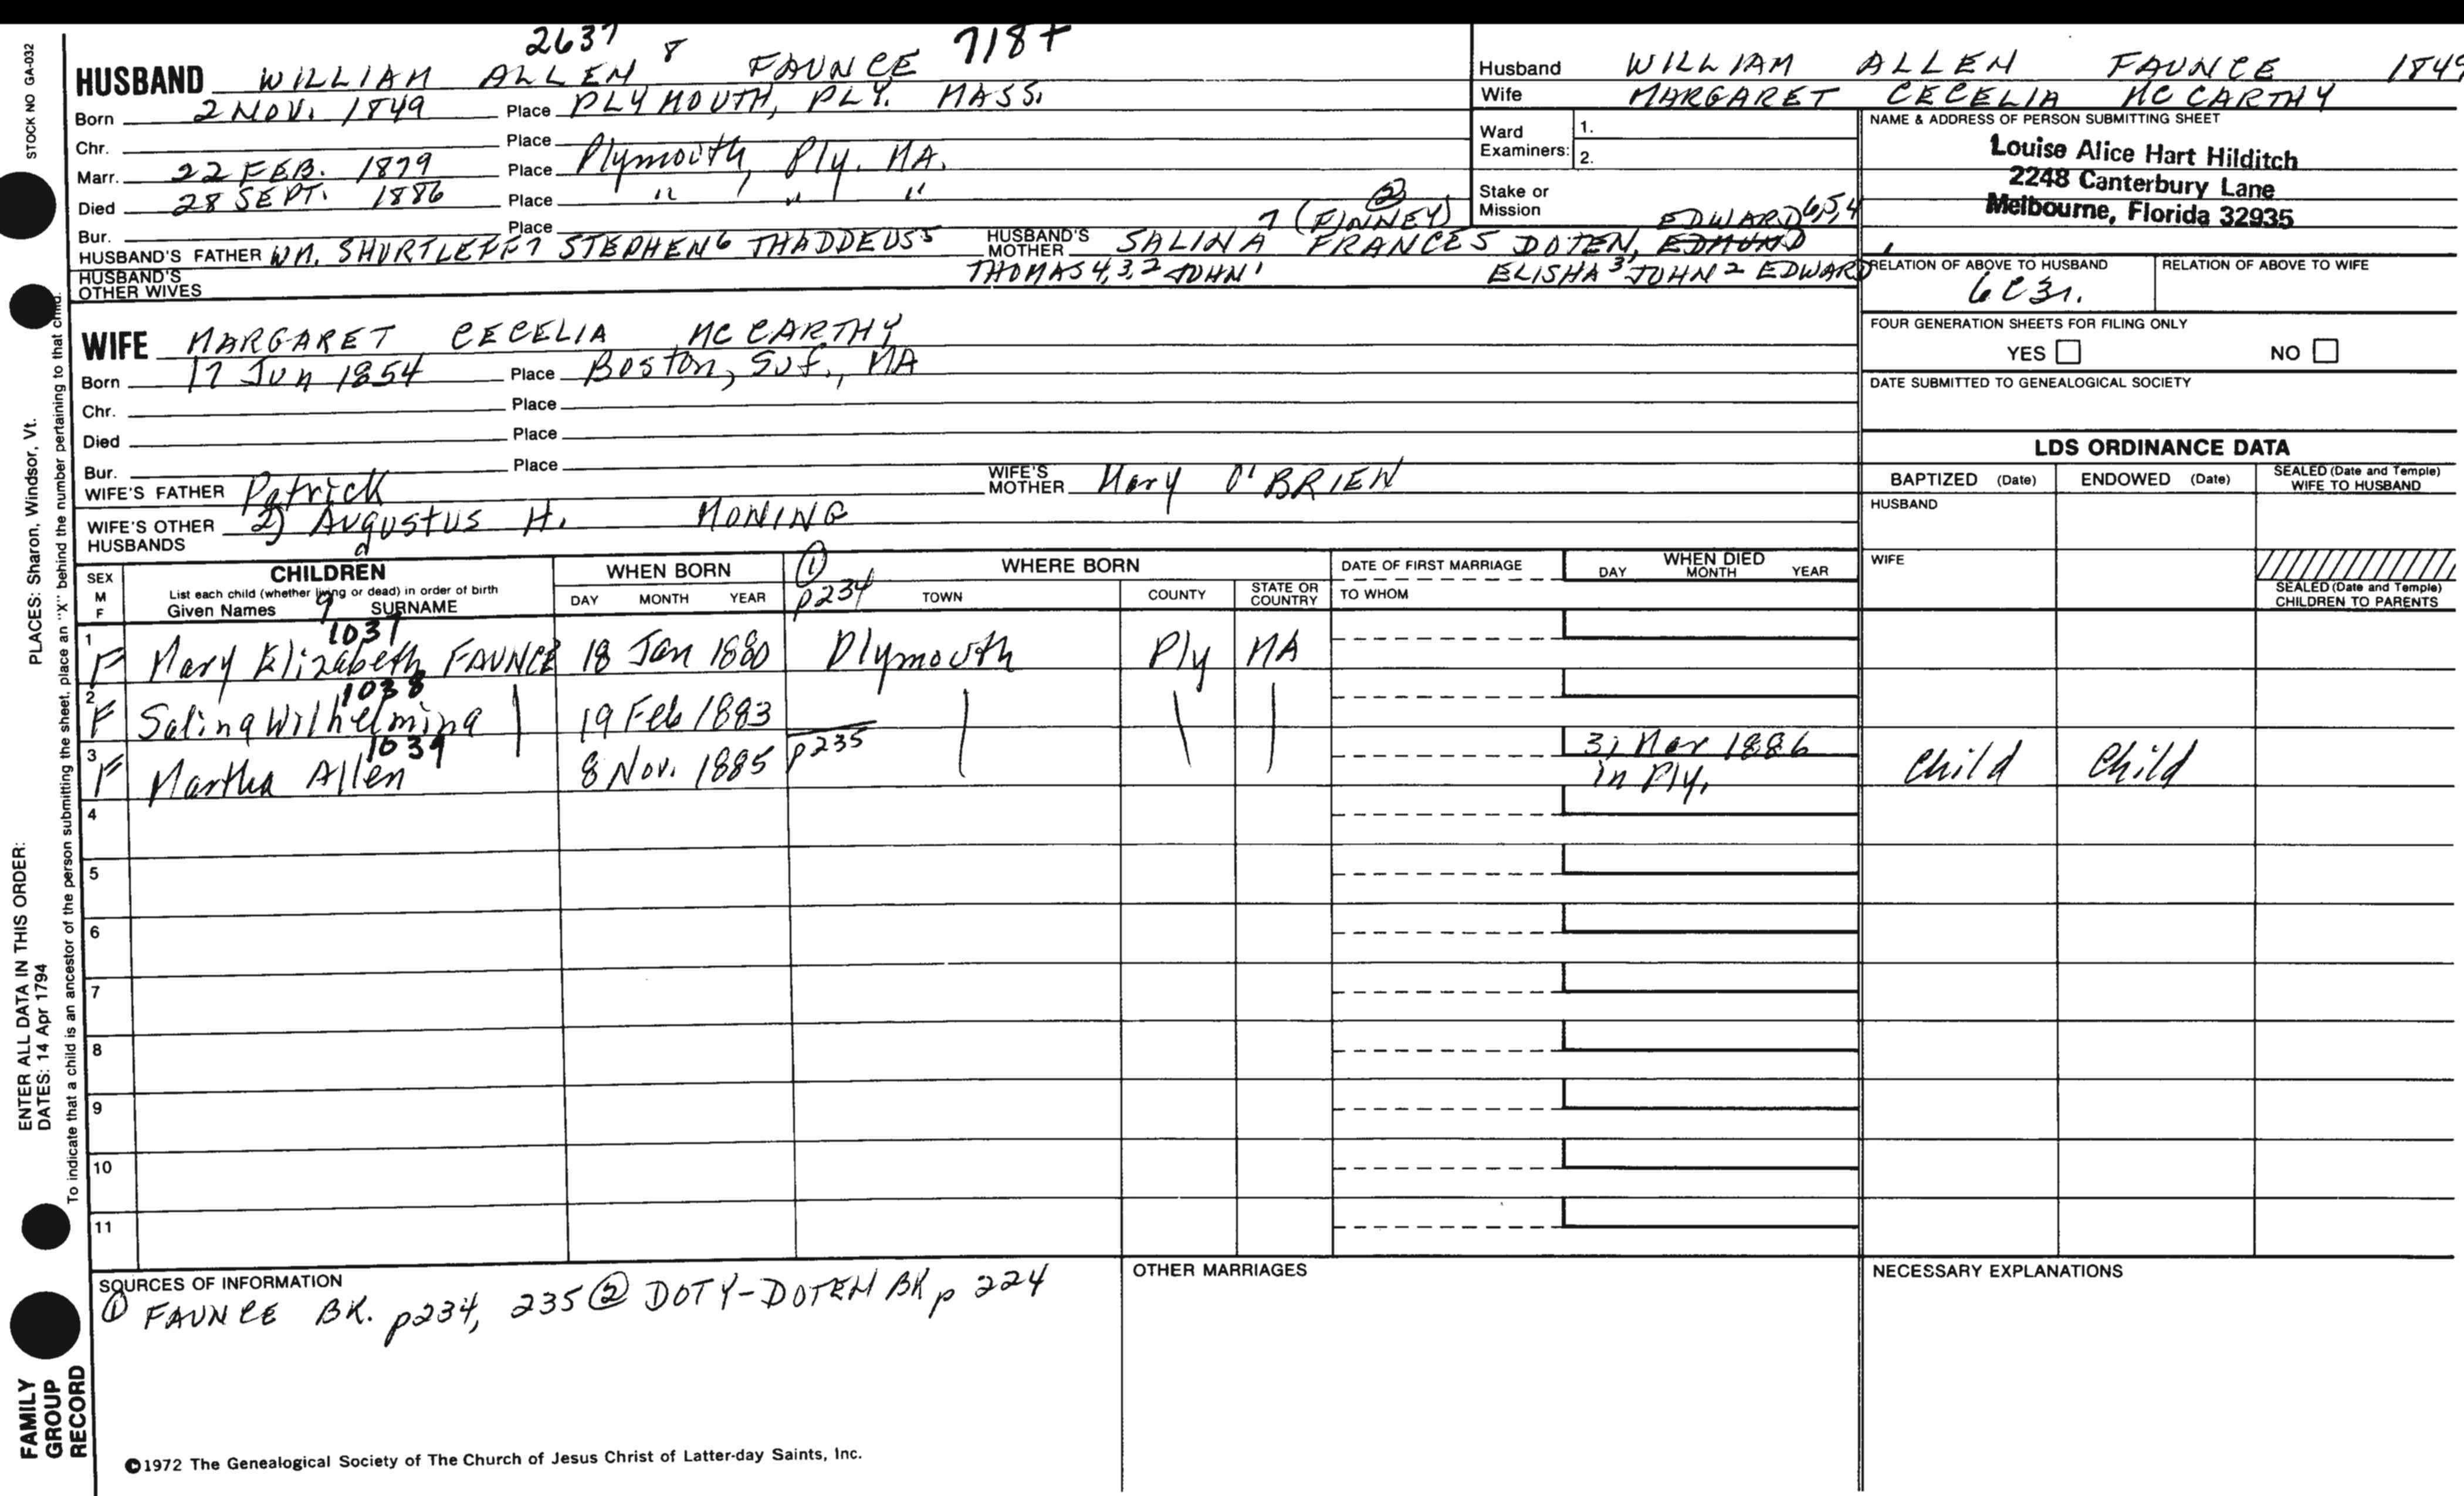 STOCK NO GA-032
PLACES: Sharon, Windsor, Vt.
ENTER ALL DATA IN THIS ORDER:
DATES: 14 Apr 1794
To indicate that a child is an ancestor of the person submitting the sheet, place an "X" behind the number pertaining to that child.
FAMILY
GROUP
RECORD
2637 8 718+
HUSBAND WILLIAM ALLEN FAUNCE
Born 2 NOV. 1849 Place PLYMOUTH, PLY. MASS.
Chr. Place
Marr. 22 FEB. 1879 Place Plymouth, Ply. MA.
Died 28 SEPT. 1886 Place " , " , "
Bur. Place
HUSBAND'S FATHER WM. SHURTLEFF7 STEPHEN6 THADDEUS5
THOMAS 4,3,2 JOHN1
HUSBAND'S MOTHER SALINA 7 (FINNEY) ②
FRANCES DOTEN, EDMUND EDWARD 6,5,4
ELISHA3 JOHN2 EDWARD1
HUSBAND'S OTHER WIVES
WIFE MARGARET CECELIA MC CARTHY
Born 17 Jun 1854 Place Boston, Suf., MA
Chr. Place
Died Place
Bur. Place
WIFE'S FATHER Patrick
WIFE'S MOTHER Mary O'BRIEN
WIFE'S OTHER HUSBANDS 2) Augustus H. MONING
Husband WILLIAM ALLEN FAUNCE 1849
Wife MARGARET CECELIA MC CARTHY
Ward Examiners: 1.
2.
Stake or Mission
NAME & ADDRESS OF PERSON SUBMITTING SHEET
Louise Alice Hart Hilditch
2248 Canterbury Lane
Melbourne, Florida 32935
RELATION OF ABOVE TO HUSBAND RELATION OF ABOVE TO WIFE
6C3r.
FOUR GENERATION SHEETS FOR FILING ONLY
YES NO
DATE SUBMITTED TO GENEALOGICAL SOCIETY
LDS ORDINANCE DATA
BAPTIZED (Date) ENDOWED (Date) SEALED (Date and Temple) WIFE TO HUSBAND
HUSBAND
WIFE
SEALED (Date and Temple) CHILDREN TO PARENTS
SEX M F
CHILDREN
List each child (whether living or dead) in order of birth
Given Names 9 SURNAME
WHEN BORN
DAY MONTH YEAR
① p234
WHERE BORN
TOWN COUNTY STATE OR COUNTRY
DATE OF FIRST MARRIAGE
TO WHOM
WHEN DIED
DAY MONTH YEAR
1 F 1037 Mary Elizabeth FAUNCE 18 Jan 1880 Plymouth Ply MA
2 F 1038 Salina Wilhelmina 19 Feb 1883
3 F 1039 Martha Allen 8 Nov. 1885 p235 31 Mar 1886 in Ply. Child Child
4
5
6
7
8
9
10
11
SOURCES OF INFORMATION
① FAUNCE BK. p234, 235 ② DOTY-DOTEN BK p 224
OTHER MARRIAGES
NECESSARY EXPLANATIONS
©1972 The Genealogical Society of The Church of Jesus Christ of Latter-day Saints, Inc.